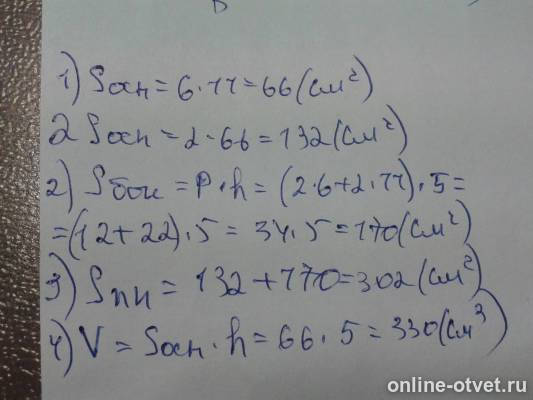 1) Sосн = 6·11 = 66 (см²)
2 Sосн = 2·66 = 132 (см²)
2) Sбок = P·h = (2·6+2·11)·5 =
= (12+22)·5 = 34·5 = 170 (см²)
3) Sпп = 132+170 = 302 (см²)
4) V = Sосн·h = 66·5 = 330 (см³)
online-otvet.ru